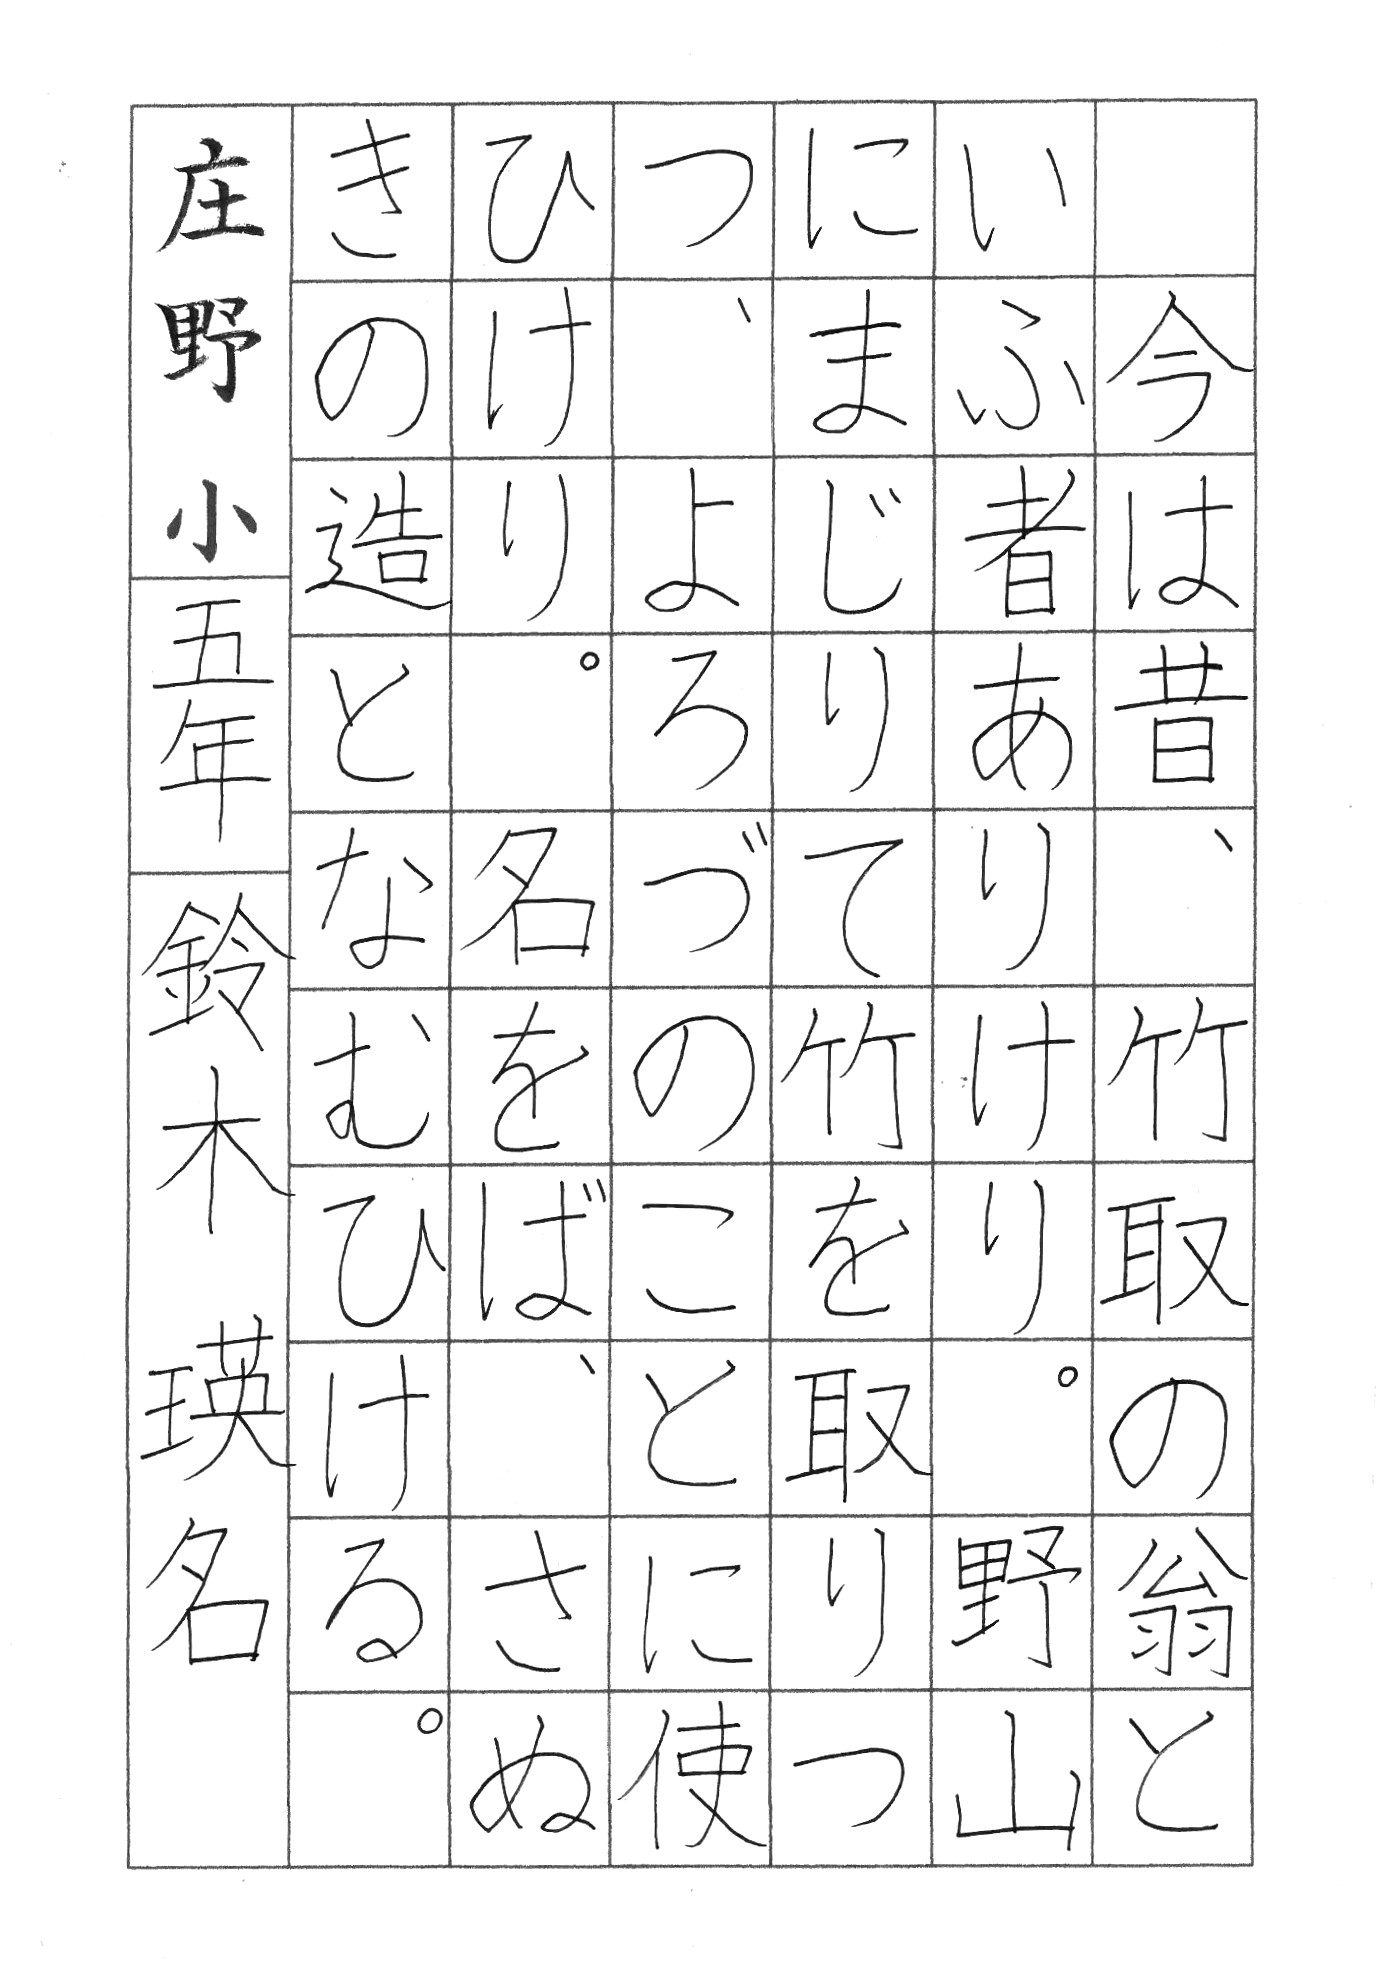 今は昔、竹取の翁と
いふ者ありけり。野山
にまじりて竹を取りつ
つ、よろづのことに使
ひけり。名をば、さぬ
きの造となむひける。
庄野小五年鈴木瑛名